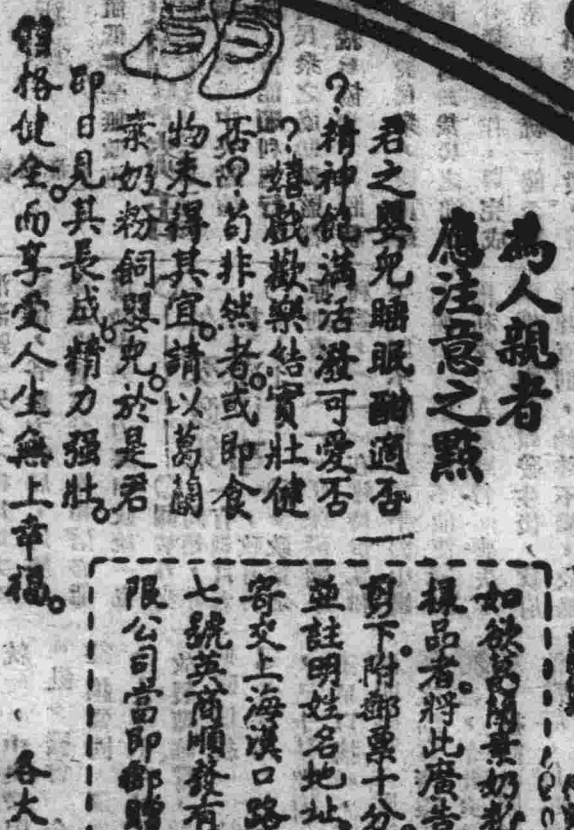 為人親者
應注意之點
君之嬰兒睡眠酣適否
？精神飽滿活潑可愛否
？嬉戲歡樂結實壯健
否？苟非然者。或即食
物未得其宜。請以葛蘭
素奶粉飼嬰兒。於是君
即日見其長成。精力强壯。
體格健全。而享受人生無上幸福。
如欲葛蘭素奶粉
樣品者。將此廣告
剪下。附郵票十分
並註明姓名地址
寄交上海漢口路
七號英商順發有
限公司當即郵贈
各大